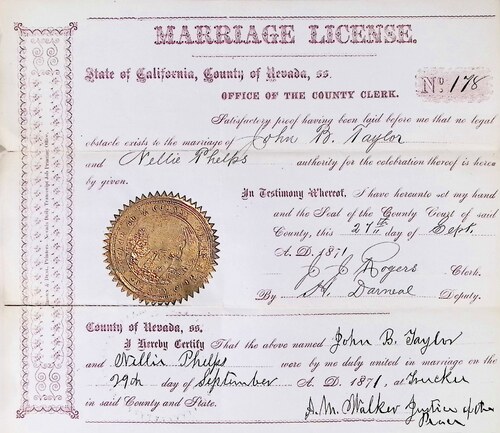 MARRIAGE LICENSE.
State of California, County of Nevada, ss.
No 178
OFFICE OF THE COUNTY CLERK.
Satisfactory proof having been laid before me that no legal
obstacle exists to the marriage of John B. Taylor
and Nellie Phelps authority for the celebration thereof is here
by given.
In Testimony Whereof, I have hereunto set my hand
and the Seal of the County Court of said
County, this 27th day of Sept.
A. D. 1871
J. J. Rogers Clerk.
By H. Darneal Deputy.
County of Nevada, ss.
I Hereby Certify That the above named John B. Taylor
and Nellie Phelps were by me duly united in marriage on the
29th day of September A. D. 1871, at Truckee
in said County and State.
A. M. Walker Justice of the
Peace